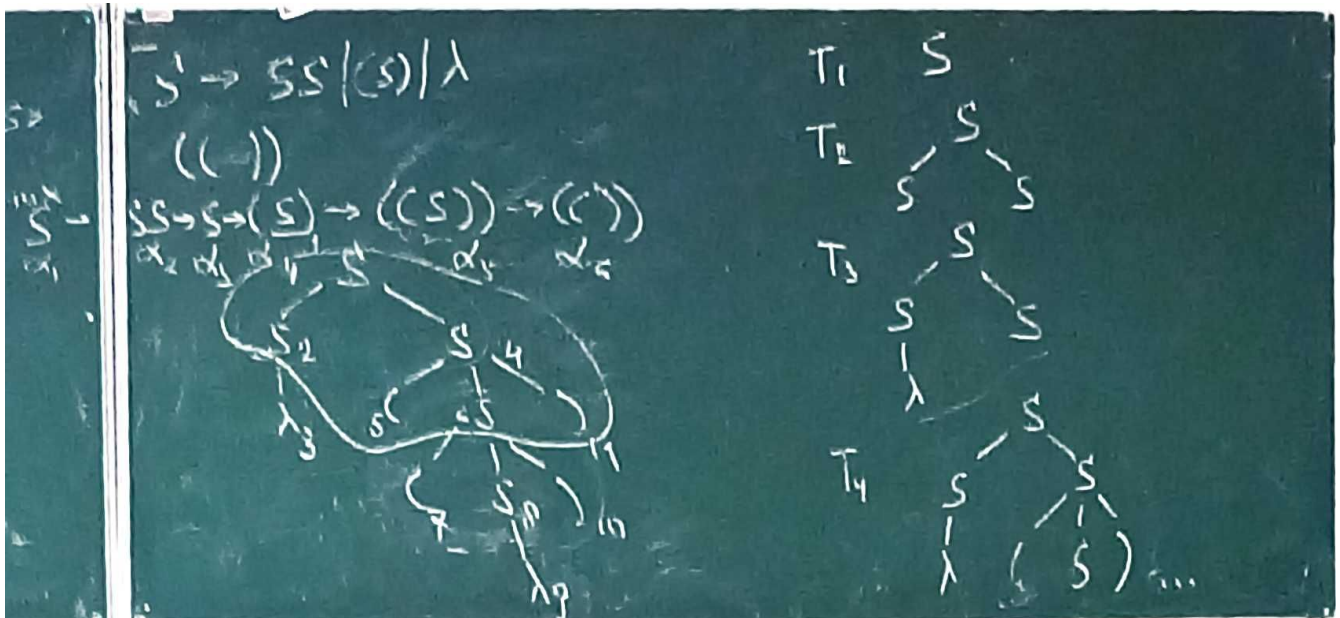 S → SS|(S)|λ
(( ))
S → SS → S → (S) → ((S)) → (())
α₁ α₂ α₃ α₄ α₅ α₆
S
S 2 S 4
λ 3 5 ( S ) 11
( 7 S ) 10
λ 9
T₁ S
T₂ S
S S
T₃ S
S S
λ
T₄ S
S S
λ ( S ) ...